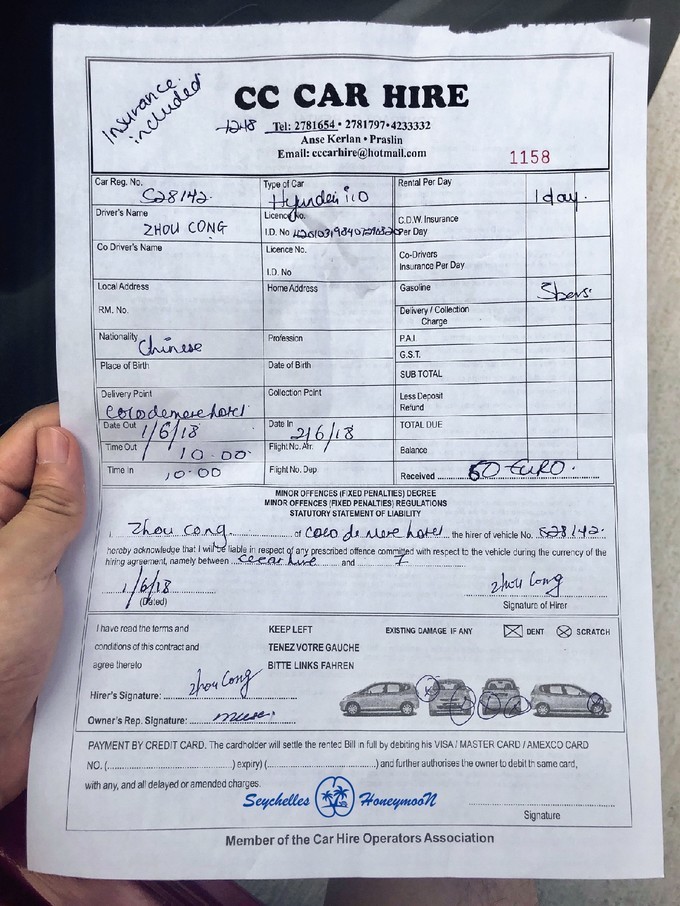 Insurance included
CC CAR HIRE
Tel: 2781654 • 2781797•4233332
Anse Kerlan • Praslin
Email: cccarhire@hotmail.com
1158
Car Reg. No. S28142
Type of Car Hyundei i10
Rental Per Day 1 day
Driver's Name ZHOU CONG
Licence No.
I.D. No
C.D.W. Insurance Per Day
Co Driver's Name
Licence No.
I.D. No
Co-Drivers Insurance Per Day
Local Address
Home Address
Gasoline 5bars
RM. No.
Delivery / Collection Charge
Nationality Chinese
Profession
P.A.I.
G.S.T.
Place of Birth
Date of Birth
SUB TOTAL
Delivery Point coco de mere hotel
Collection Point
Less Deposit Refund
Date Out 1/6/18
Date In 2/6/18
TOTAL DUE
Time Out 10.00
Flight No. Arr.
Balance
Time In 10.00
Flight No. Dep
Received 50 EURO.
MINOR OFFENCES (FIXED PENALTIES) DECREE
MINOR OFFENCES (FIXED PENALTIES) REGULATIONS
STATUTORY STATEMENT OF LIABILITY
I, Zhou Cong of coco de mere hotel the hirer of vehicle No. S28142.
hereby acknowledge that I will be liable in respect of any prescribed offence committed with respect to the vehicle during the currency of the
hiring agreement, namely between cccar hire and
1/6/18
Zhou Cong
(Dated)
Signature of Hirer
I have read the terms and
KEEP LEFT
EXISTING DAMAGE IF ANY
DENT
SCRATCH
conditions of this contract and
TENEZ VOTRE GAUCHE
agree thereto
BITTE LINKS FAHREN
Hirer's Signature: Zhou Cong
Owner's Rep. Signature:
PAYMENT BY CREDIT CARD. The cardholder will settle the rented Bill in full by debiting his VISA / MASTER CARD / AMEXCO CARD
NO. (....................) expiry) (....................) and further authorises the owner to debit th same card,
with any, and all delayed or amended charges.
Seychelles HoneymooN
Signature
Member of the Car Hire Operators Association